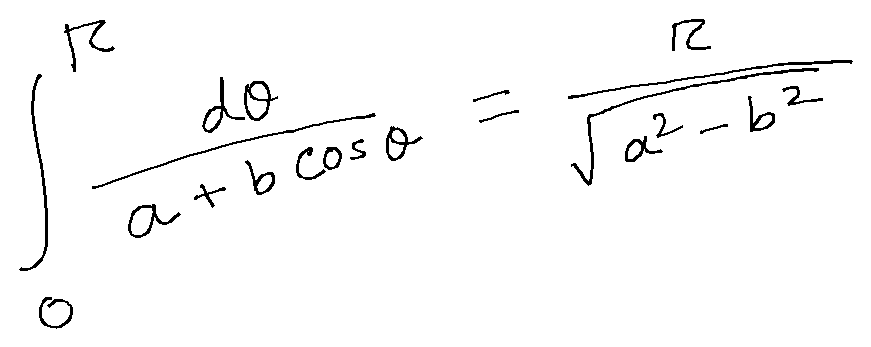 \int_{0}^{\pi} \frac{d\theta}{a + b \cos \theta} = \frac{\pi}{\sqrt{a^2 - b^2}}